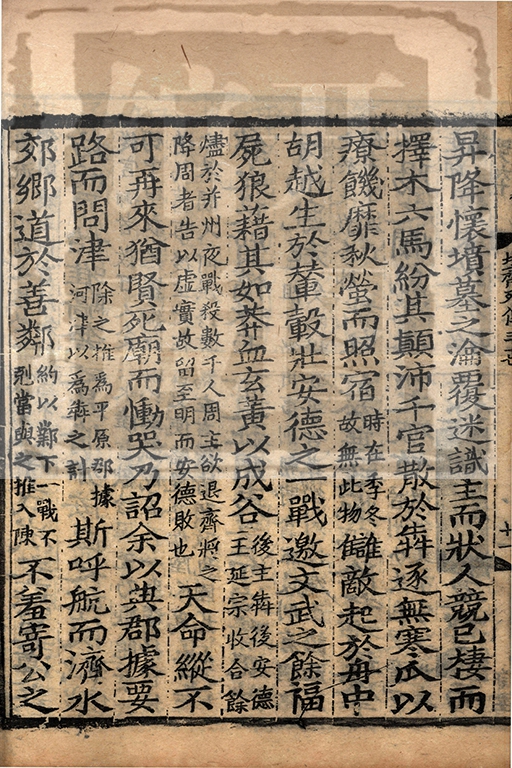 昇降懷墳墓之淪覆迷識主而狀人競已棲而
擇木六馬紛其顛沛千官散於犇逐無寒瓜以
療饑靡秋螢而照宿時在季冬故無此物讎敵起於舟中
胡越生於輦轂壯安德之一戰邀文武之餘福
屍狼藉其如莽血玄黃以成谷後主犇後安德王延宗收合餘
燼於并州夜戰殺數千人周主欲退齊將之降周者告以虛實故留至明而安德敗也天命縱不
可再來猶賢死廟而慟哭乃詔余以典郡據要
路而問津除之推爲平原郡據河津以爲犇之計斯呼航而濟水
郊鄉道於善鄰約以鄴下一戰不剋當與之推入陳不羞寄公之